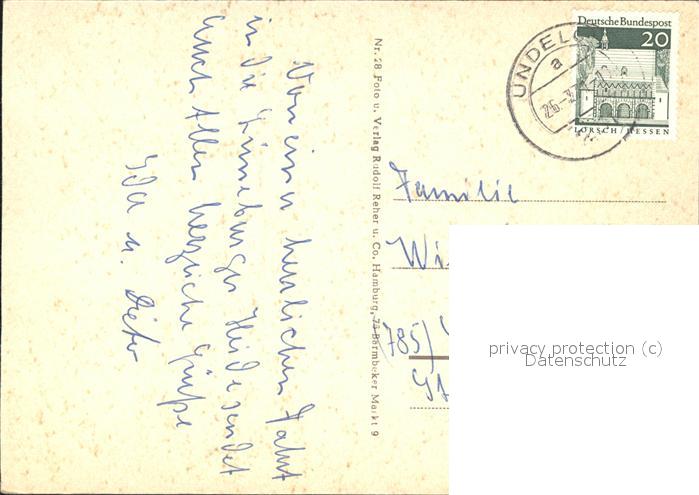 Von einer herrlichen Fahrt
in die Lüneburger Heide sendet
Euch Allen herzliche Grüße
Ida u. Dieter
Nr. 28 Foto u. Verlag Rudolf Reher u. Co. Hamburg, 73 Barmbeker Markt 9
Deutsche Bundespost
20
LORSCH/HESSEN
UNDELO
a
26.-3
Familie
Wi
785/
privacy protection (c)
Datenschutz